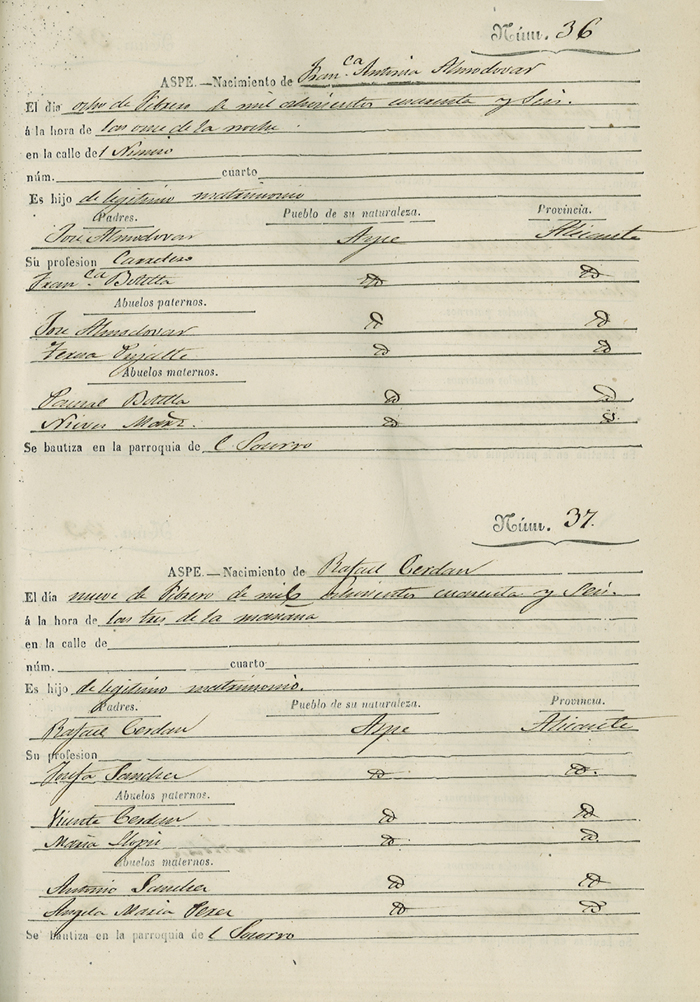 Núm. 36
ASPE.—Nacimiento de Fran.ca Antonia Almodovar
El día ocho de Febrero de mil ochocientos cuarenta y Seis.
á la hora de las once de la noche
en la calle del
núm. cuarto
Es hijo de legitimo matrimonio
Padres. Pueblo de su naturaleza. Provincia.
Jose Almodovar Aspe Alicante
Su profesion
Fran.ca Botella id id
Abuelos paternos.
Jose Almodovar id id
Teresa Pujalte id id
Abuelos maternos.
Pascual Botella id id
Nieves id id
Se bautiza en la parroquia del Socorro
Núm. 37.
ASPE.—Nacimiento de Rafael Cerdan
El día nueve de Febrero de mil ochocientos cuarenta y Seis.
á la hora de las tres de la mañana
en la calle de
núm. cuarto
Es hijo de legitimo matrimonio.
Padres. Pueblo de su naturaleza. Provincia.
Rafael Cerdan Aspe Alicante
Su profesion
Josefa Sanchez id id.
Abuelos paternos.
Vicente Cerdan id id
Maria Llopis id id
Abuelos maternos.
Antonio Sanchez id id
Angela Maria Perez id id
Se bautiza en la parroquia del Socorro